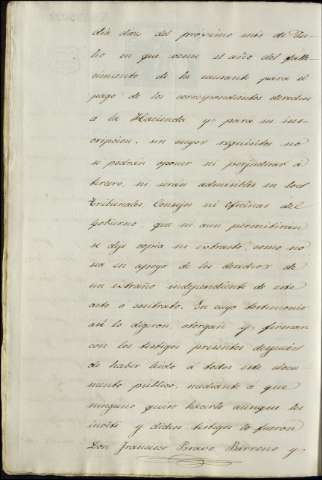 dia diez del próximo mes de Ju-
lio en que vence el año del falle-
cimiento de la causante para el
pago de los correspondientes derechos
a la Hacienda y para su ins-
cripcion, sin cuyos requisitos no
se podrán oponer ni perjudicar a
tercero, ni serán admisibles en los
Tribunales, Consejos ni oficinas del
Gobierno, que ni aun permitirán
se deje copia ni extracto, como no
sea en apoyo de los derechos de
un extraño independiente de este
acto o contrato. En cuyo testimonio
asi lo digeron, otorgan y firman
con los testigos presentes despues
de haber leido a todos este docu-
mento público, mediante á que
ninguno quiso hacerlo aunque les
invité y dichos testigos lo fueron
Don Francisco Bravo Barreno y